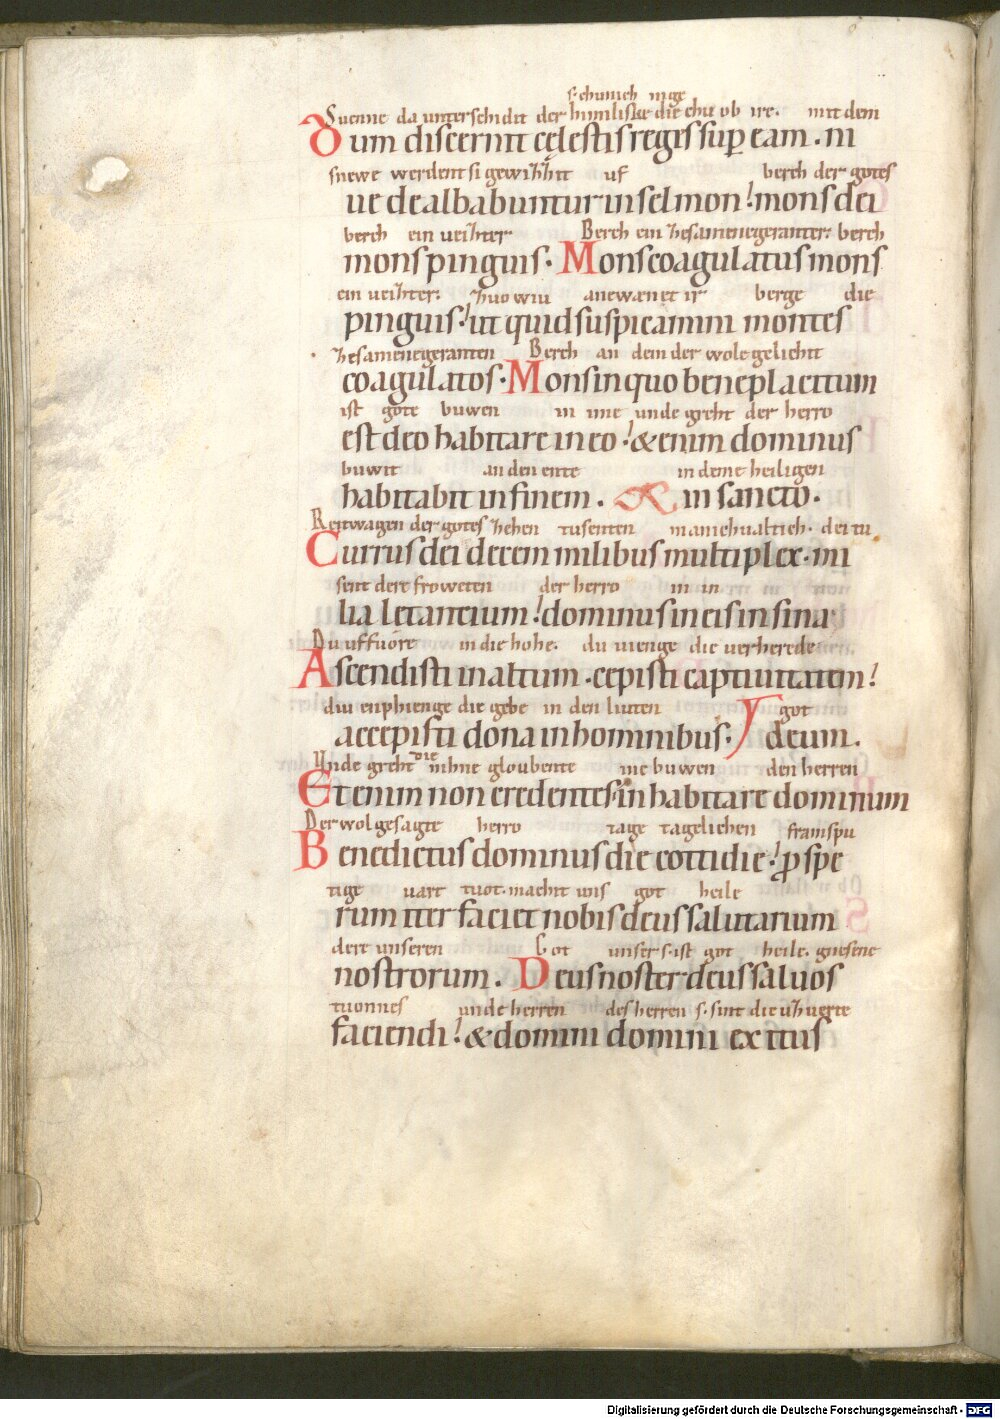 s. chunich nige
Suenne da unterscheidit der himiliske die chu ob ire. mit dem
Dum discernit cęlestis reges sup eam. ni
snewe werdent si gewizzit uf berch der gotes
ue dealbabuntur in selmon! mons dei
berch ein ueizter Berch ein zesamenegeranter. berch
mons pinguis. Mons coagulatus mons
ein ueizter. zuo wiu anewænet ir berge die
pinguis! ut quid suspicamini montes
zesamenegeranten Berch an dem der wole gelichit
coagulatos. Mons in quo beneplacitum
ist gote buwen in ime unde greht der herro
est deo habitare in eo! & enim dominus
buwit an den ente in deme heiligen
habitabit in finem. in sancto.
Reitwagen der gotes zehen tusenten manichualtich. dei tu
Currus dei decem milibus multiplex. mi
sent dere froweten der herro in in
lia letantium! dominus in eis in sina
Du uffuore in die hohe. du uienge die uerherede
Ascendisti in altum. cepisti captiuitatem!
du enphienge die gebe in den liuten got
accepisti dona in hominibus. deum.
Unde greht die nihne gloubente ine buwen den herren
Etenim non credentes in habitare dominum
Der wol gesagte herro tage tagelichen framspu
Benedictus dominus die cottidie! p spe
tige uart tuot. machit uns got heile
rum iter faciet nobis deus salutarium
dere unseren Got unser s. ist got heile. gnesene
nostrorum. Deus noster deus saluos
tuonnes unde herren des herren s. sint die uzuerte
faciendi! & domini domini exitus
Digitalisierung gefördert durch die Deutsche Forschungsgemeinschaft - DFG